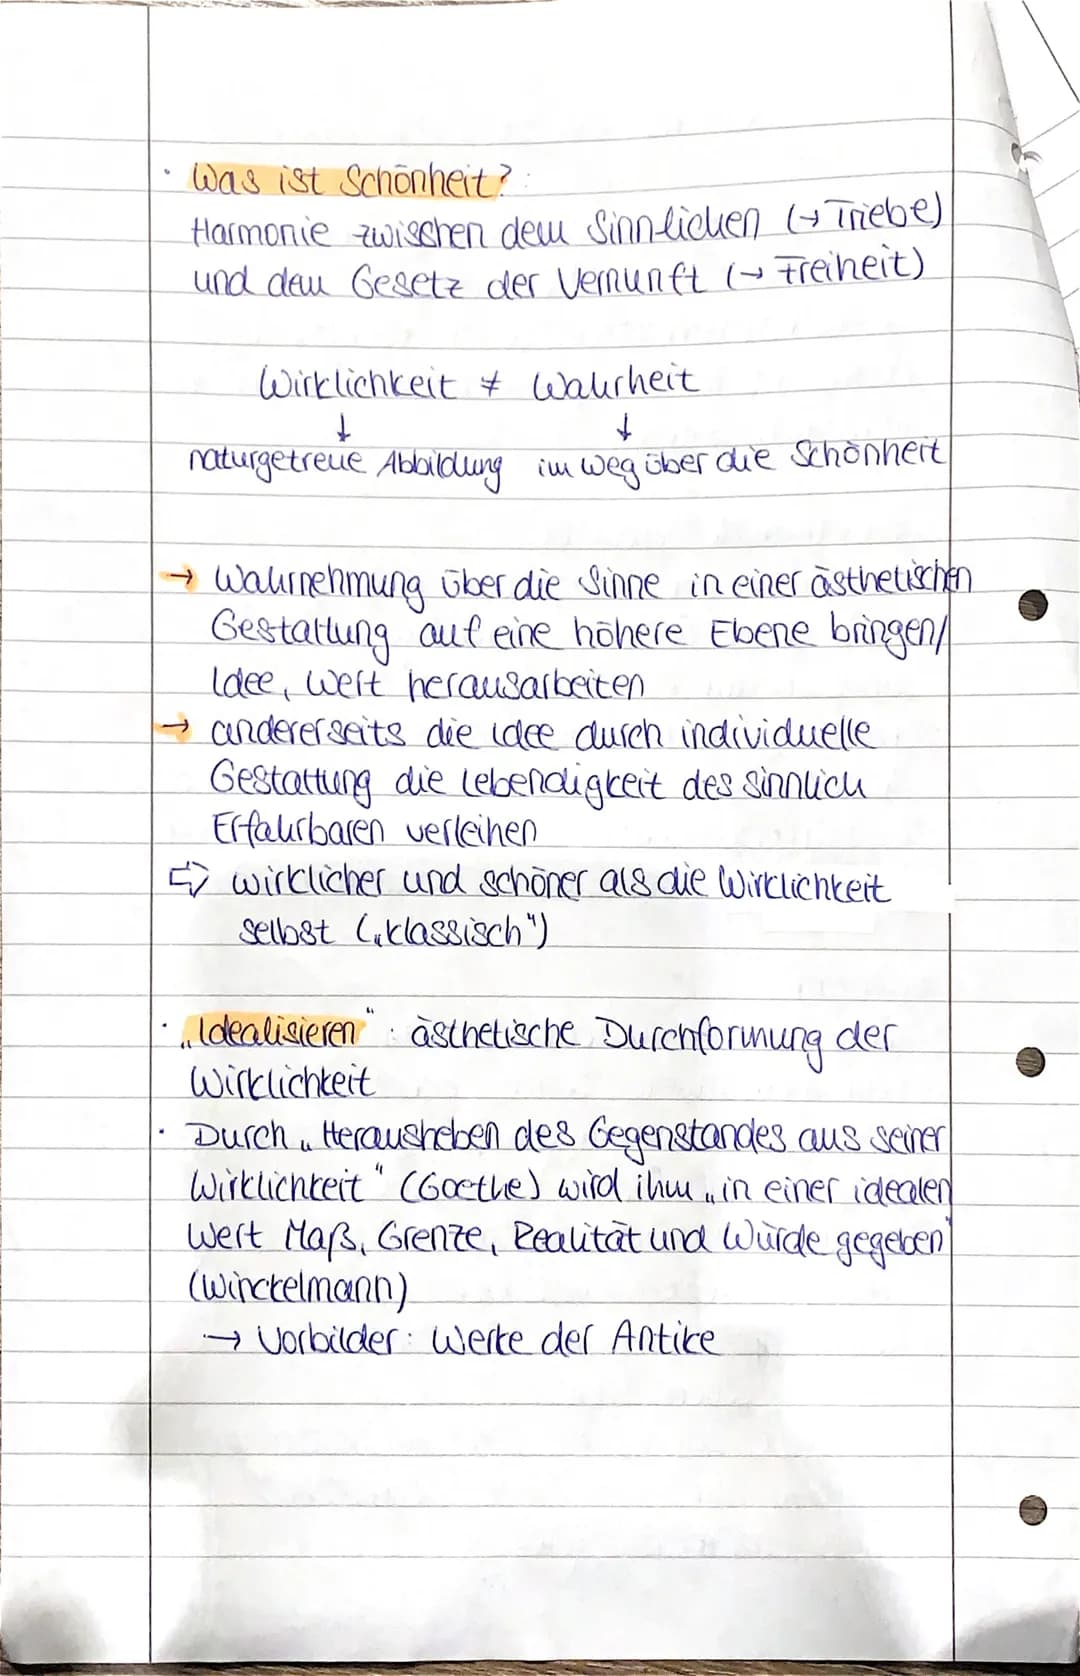 · Was ist Schönheit?:
Harmonie zwischen dem Sinnlichen (→ Triebe)
und dem Gesetz der Vernunft (→ Freiheit)
Wirklichkeit ≠ Wahrheit
↓ ↓
naturgetreue Abbildung im Weg über die Schönheit
→ Wahrnehmung über die Sinne in einer ästhetischen
Gestaltung auf eine höhere Ebene bringen/
Idee, Wert herausarbeiten
→ andererseits die Idee durch individuelle
Gestaltung die Lebendigkeit des sinnlich
Erfahrbaren verleihen
⇨ wirklicher und schöner als die Wirklichkeit
selbst („klassisch“)
· „Idealisieren“: ästhetische Durchformung der
Wirklichkeit
· Durch „Herausheben des Gegenstandes aus seiner
Wirklichkeit“ (Goethe) wird ihm „in einer idealen
Wert Maß, Grenze, Realität und Würde gegeben“
(Winckelmann)
→ Vorbilder: Werke der Antike